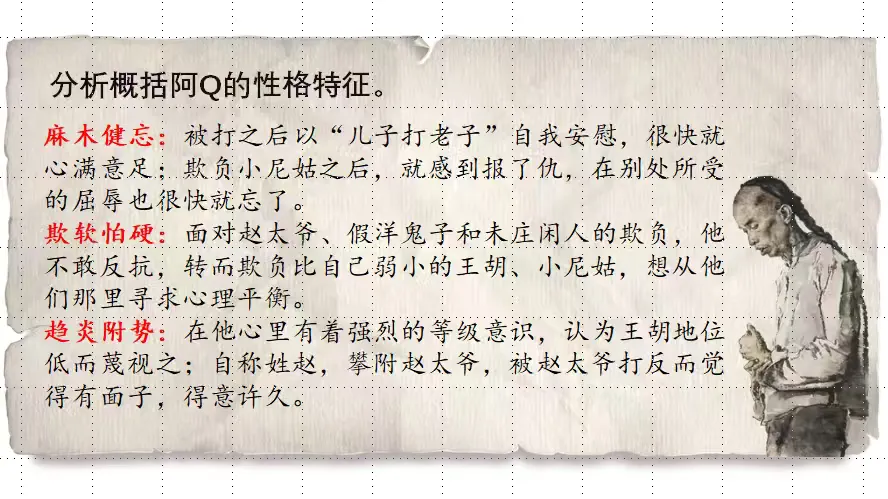 分析概括阿Q的性格特征。
麻木健忘：被打之后以“儿子打老子”自我安慰，很快就
心满意足；欺负小尼姑之后，就感到报了仇，在别处所受
的屈辱也很快就忘了。
欺软怕硬：面对赵太爷、假洋鬼子和未庄闲人的欺负，他
不敢反抗，转而欺负比自己弱小的王胡、小尼姑，想从他
们那里寻求心理平衡。
趋炎附势：在他心里有着强烈的等级意识，认为王胡地位
低而蔑视之；自称姓赵，攀附赵太爷，被赵太爷打反而觉
得有面子，得意许久。